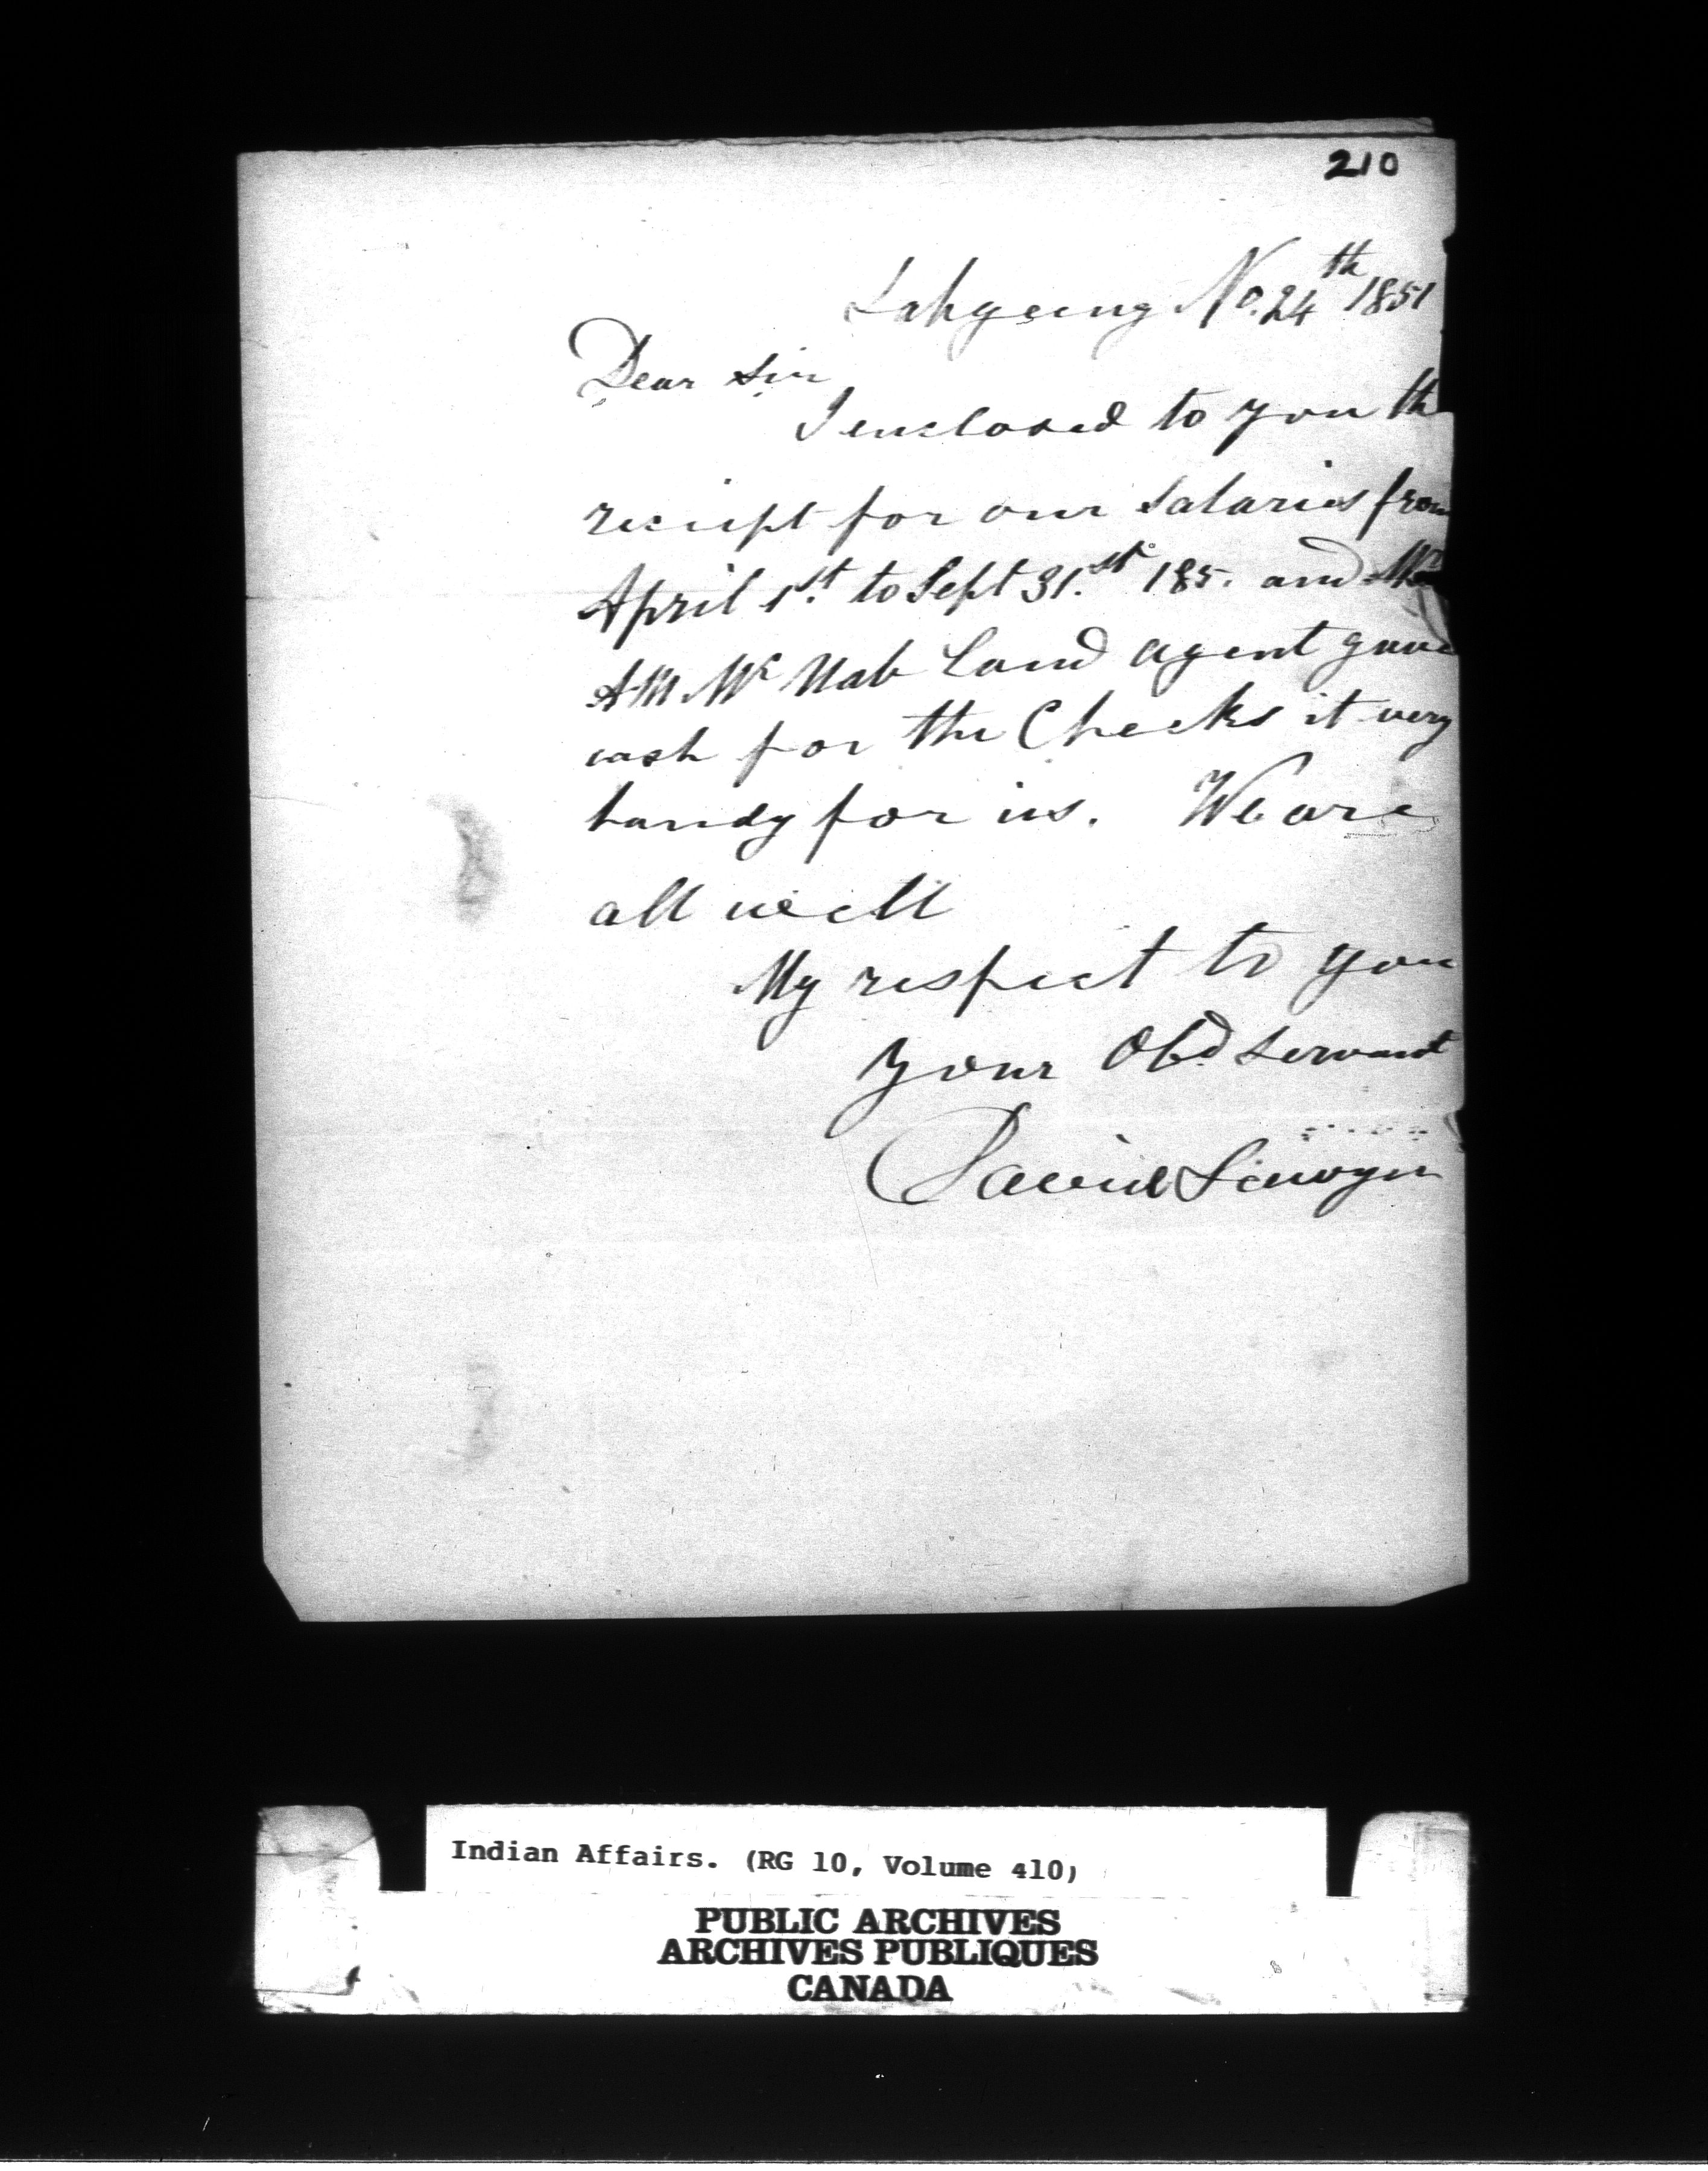 210
Sahgeeng No. 24th 1851
Dear Sir
I enclosed to you the
reciept for our Salaries from
April 1st. to Sept 31.st 185. and
A M Mc Nab Land agent gave
cash for the Checks it very
handy for us. We are
all well
My respect to you
your Obd. servant
David Sawyer
Indian Affairs. (RG 10, Volume 410)
PUBLIC ARCHIVES
ARCHIVES PUBLIQUES
CANADA